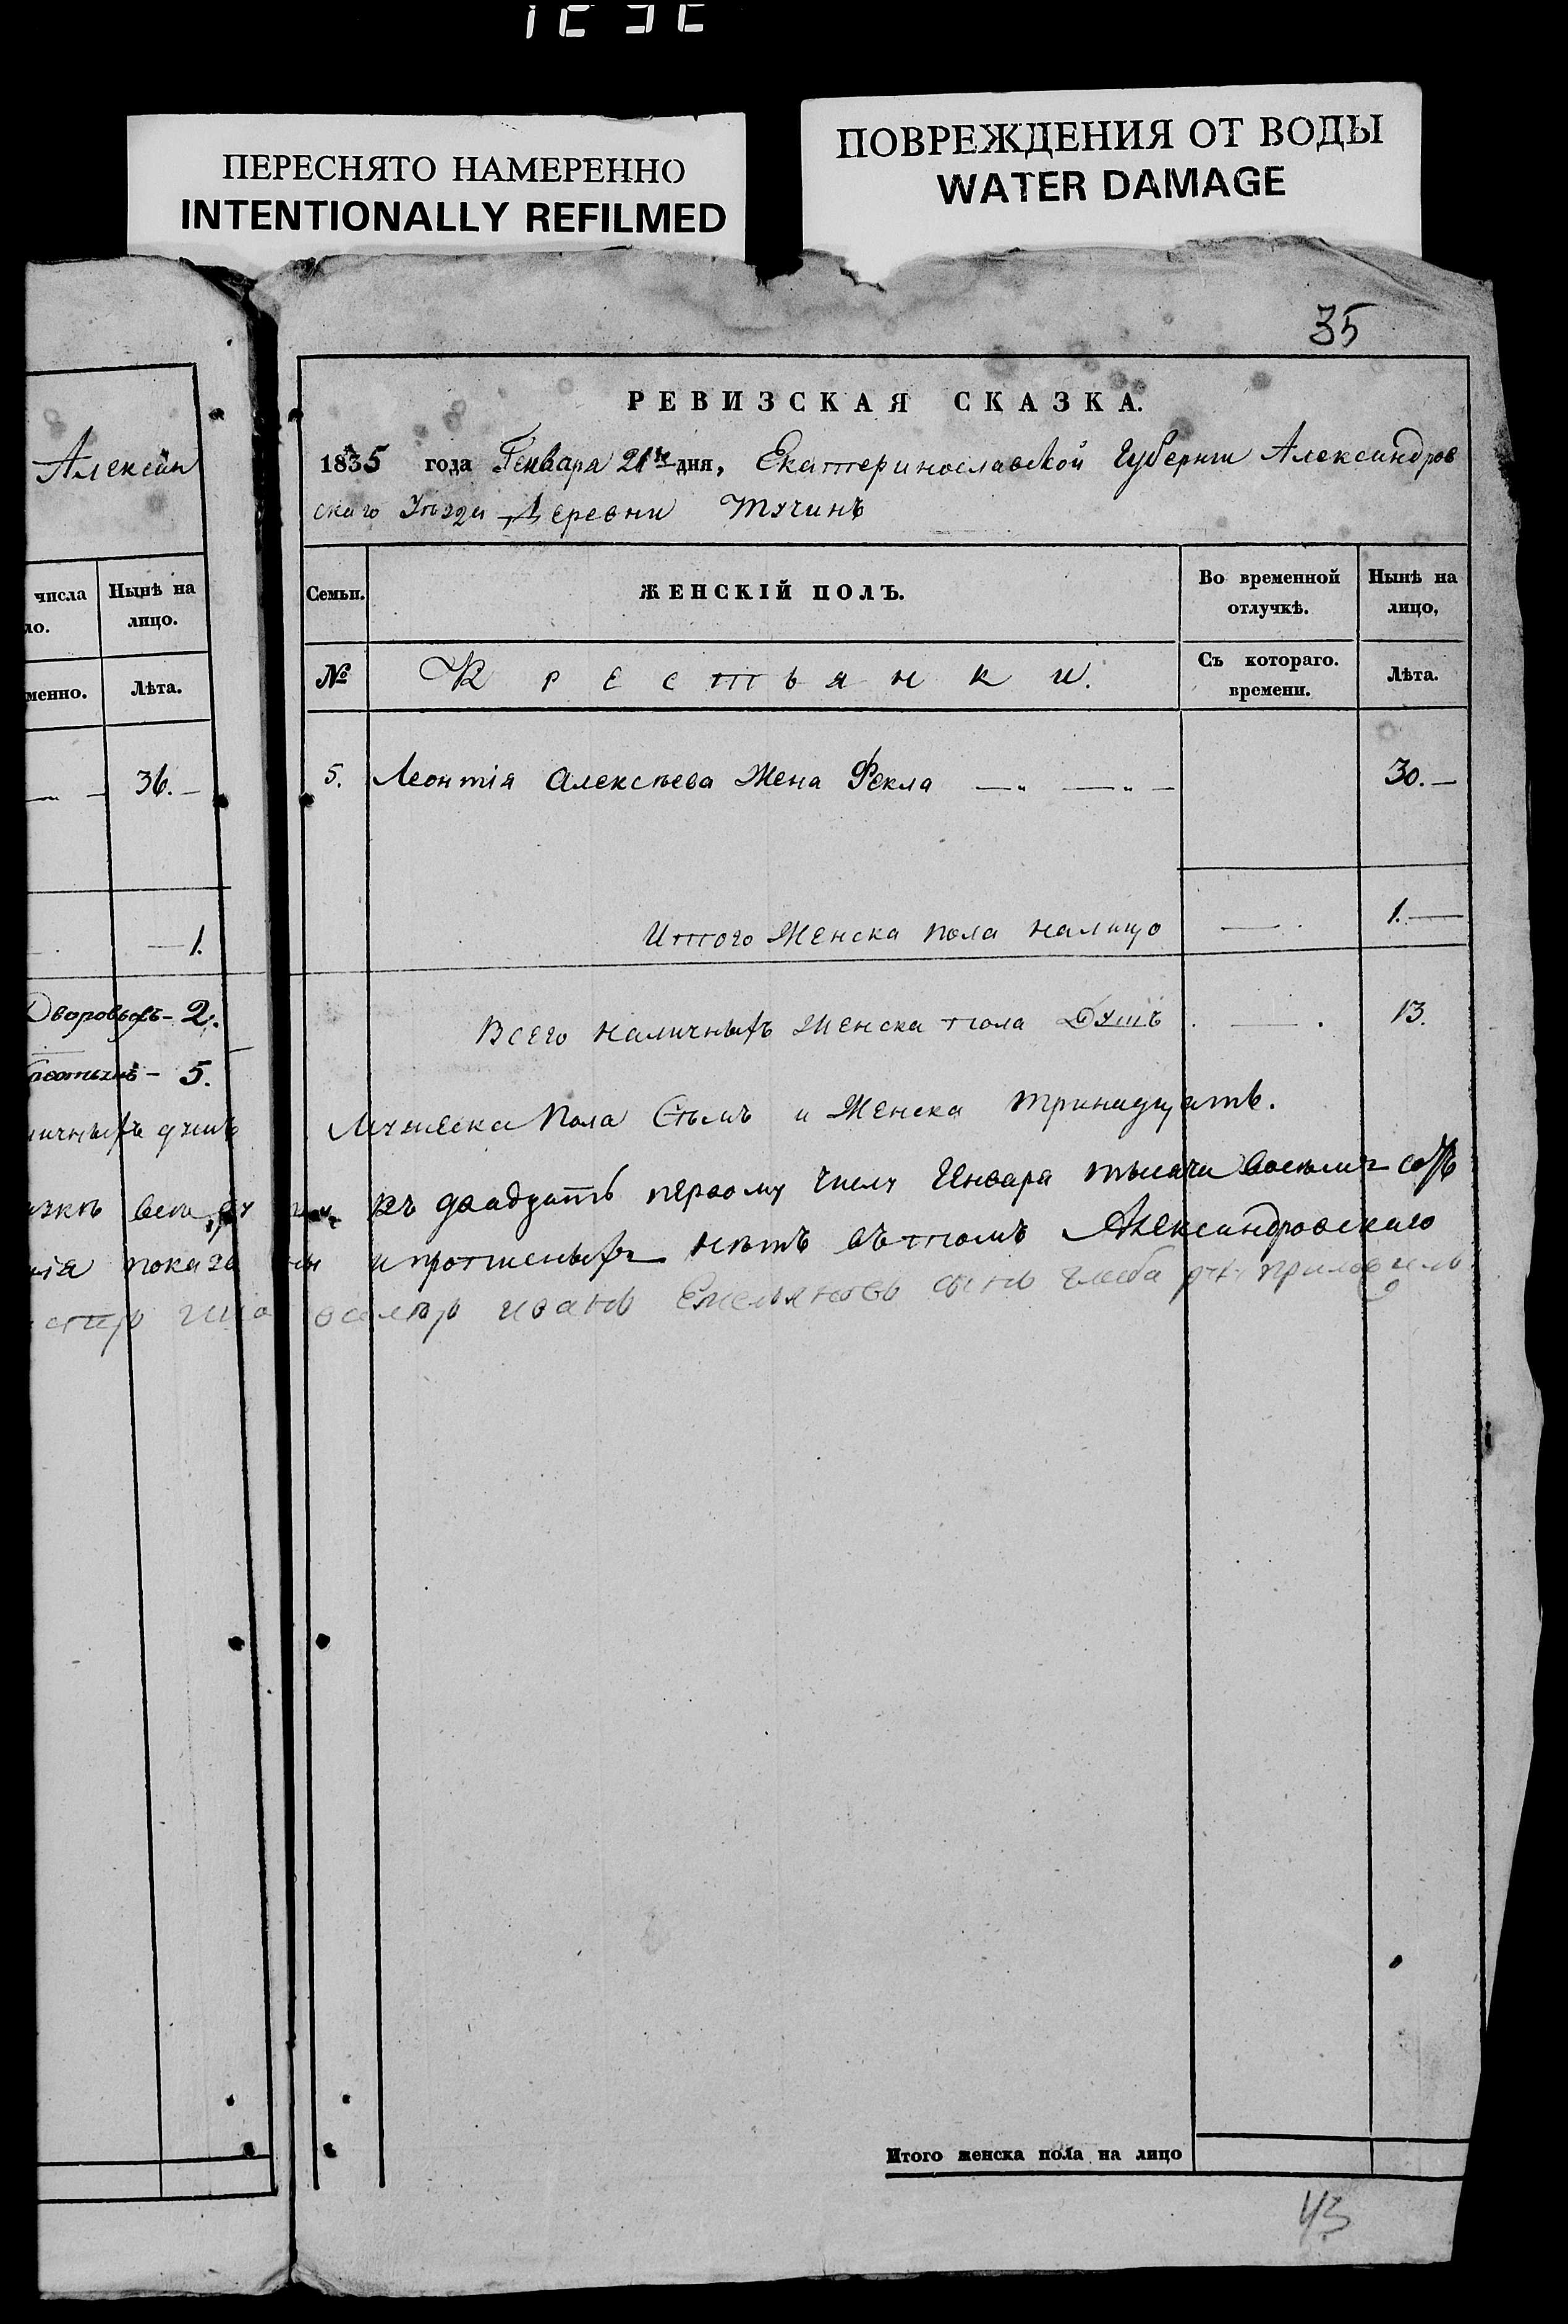 ПЕРЕСНЯТО НАМЕРЕННО
INTENTIONALLY REFILMED
ПОВРЕЖДЕНИЯ ОТ ВОДЫ
WATER DAMAGE
35
Алексѣи
числа
Нынѣ на лицо.
менно.
Лѣта.
36.
1.
Дворовыхъ - 2.
5.
личныхъ душъ
РЕВИЗСКАЯ СКАЗКА.
1835 года Генваря 21го дня, Екатеринославской Губернiи Александров
скаго Уѣзда Деревни Тучинъ
Семьи.
ЖЕНСКІЙ ПОЛЪ.
Во временной отлучкѣ.
Нынѣ на лицо,
№
Крестьянки.
Съ котораго. времени.
Лѣта.
5. Леонтія Алексѣева Жена Фекла 30.
Итого Женска пола налицо 1.
Всего наличныхъ Женска пола Душъ 13.
Мужеска Пола Семь и Женска тринадцать.
къ двадцать первому числу Генваря тысяча восемь сотъ
показаны и прописныхъ нѣтъ въ томъ Александровскаго
иванъ Емельяновъ сынъ приложилъ
Итого женска пола на лицо
43